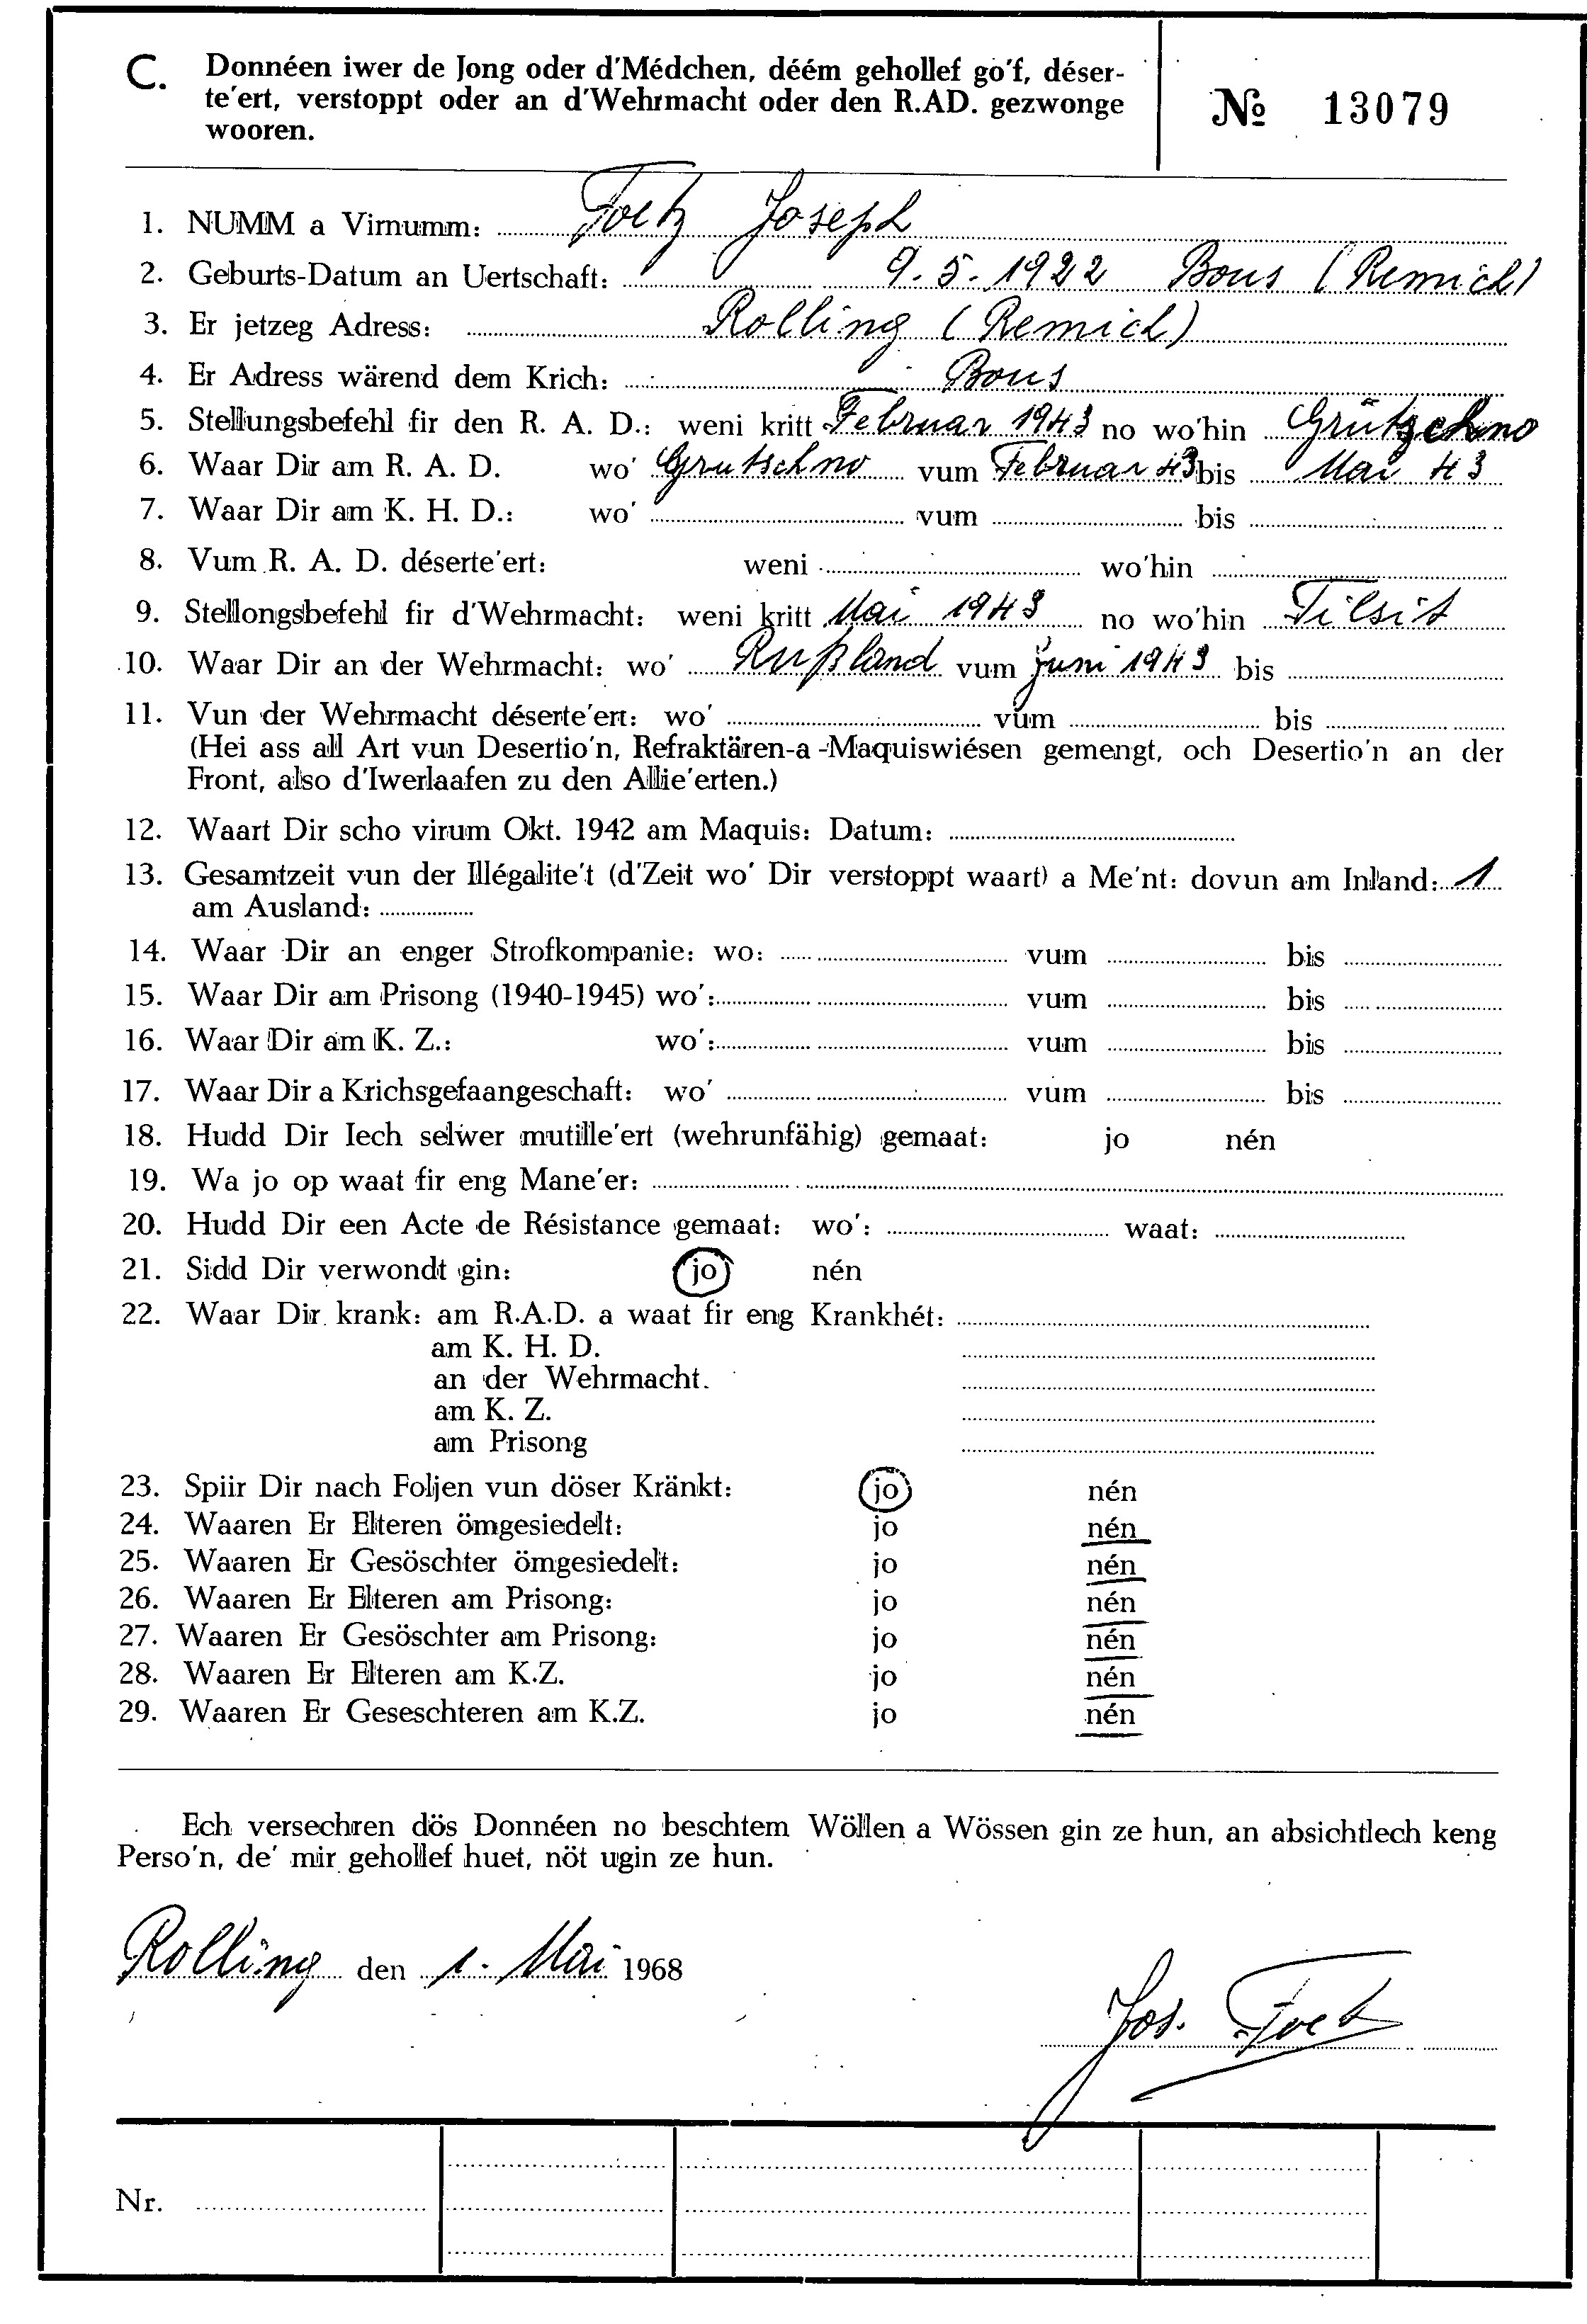 C. Donnéen iwer de Jong oder d'Médchen, déém gehollef go'f, déser-
te'ert, verstoppt oder an d'Wehrmacht oder den R.AD. gezwonge
wooren.
№ 13079
1. NUMM a Virnumm: Foetz Joseph
2. Geburts-Datum an Uertschaft: 9.5.1922 Bous (Remich)
3. Er jetzeg Adress: Rolling (Remich)
4. Er Adress wärend dem Krich: Bous
5. Stellungsbefehl fir den R. A. D.: weni kritt Februar 1943 no wo'hin
6. Waar Dir am R. A. D. wo' Grutschno vum Februar 43 bis Mai 43
7. Waar Dir am K. H. D.: wo' vum bis
8. Vum R. A. D. déserte'ert: weni wo'hin
9. Stellongsbefehl fir d'Wehrmacht: weni kritt Mai 1943 no wo'hin Tilsit
10. Waar Dir an der Wehrmacht: wo' Rußland vum Juni 1943 bis
11. Vun der Wehrmacht déserte'ert: wo' vum bis
(Hei ass all Art vun Desertio'n, Refraktären-a -Maquiswiésen gemengt, och Desertio'n an der
Front, also d'Iwerlaafen zu den Allie'erten.)
12. Waart Dir scho virum Okt. 1942 am Maquis: Datum:
13. Gesamtzeit vun der Illégalite't (d'Zeit wo' Dir verstoppt waart) a Me'nt: dovun am Inland: 1
am Ausland:
14. Waar Dir an enger Strofkompanie: wo: vum bis
15. Waar Dir am Prisong (1940-1945) wo': vum bis
16. Waar Dir am K. Z.: wo': vum bis
17. Waar Dir a Krichsgefaangeschaft: wo' vum bis
18. Hudd Dir Iech selwer mutille'ert (wehrunfähig) gemaat: jo nén
19. Wa jo op waat fir eng Mane'er:
20. Hudd Dir een Acte de Résistance gemaat: wo': waat:
21. Sidd Dir verwondt gin: jo nén
22. Waar Dir krank: am R.A.D. a waat fir eng Krankhét:
am K. H. D.
an der Wehrmacht.
am K. Z.
am Prisong
23. Spiir Dir nach Foljen vun döser Kränkt: jo nén
24. Waaren Er Elteren ömgesiedelt: jo nén
25. Waaren Er Gesöschter ömgesiedelt: jo nén
26. Waaren Er Elteren am Prisong: jo nén
27. Waaren Er Gesöschter am Prisong: jo nén
28. Waaren Er Elteren am K.Z. jo nén
29. Waaren Er Geseschteren am K.Z. jo nén
Ech versechren dös Donnéen no beschtem Wöllen a Wössen gin ze hun, an absichtlech keng
Perso'n, de' mir gehollef huet, nöt ugin ze hun.
Rolling den 1. Mai 1968
Jos. Foetz
Nr.